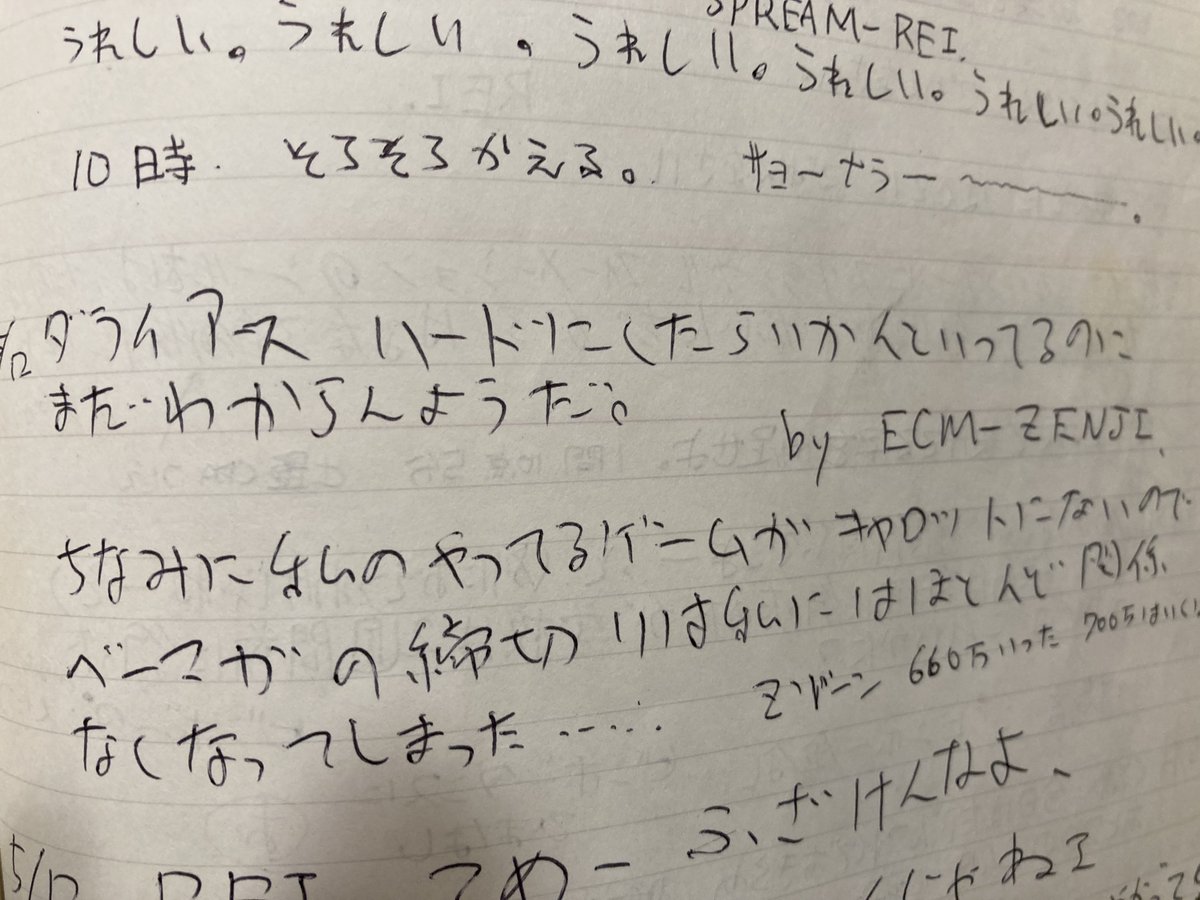 SPREAM-REI.
うれしい。うれしい。うれしい。うれしい。うれしい。うれしい。
10日時. そろそろかえる。 サヨーナラー〜〜.
/12 ダライアース ハードにしたらいかんといってるのに
まだわからんようだ。
by ECM-ZENJI.
ちなみに ENIのやってるゲームが キャロットにないので
ベーマガの締切りは ENIにはほとんど関係
なくなってしまった……
Zゾーン 660万いった 700万はいく
5/12 てめー ふざけんなよ、